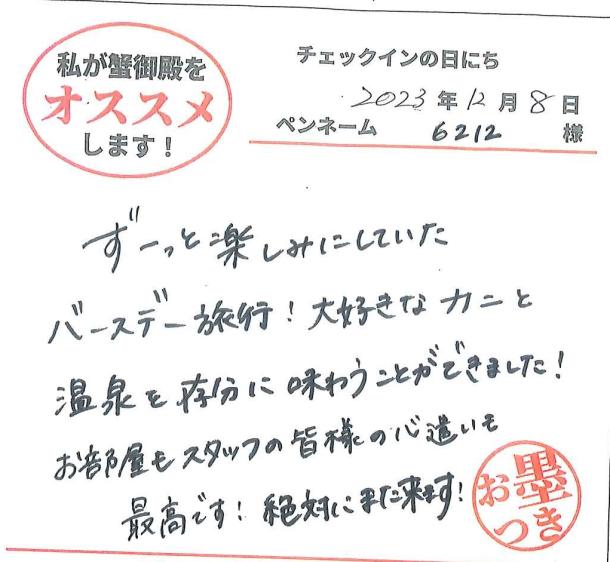 私が蟹御殿を
オススメ
します！
チェックインの日にち
2023年12月8日
ペンネーム 6212 様
ずーっと楽しみにしていた
バースデー旅行！大好きなカニと
温泉を存分に味わうことができました！
お部屋もスタッフの皆様の心遣いも
最高です！絶対にまた来ます！
お墨
つき